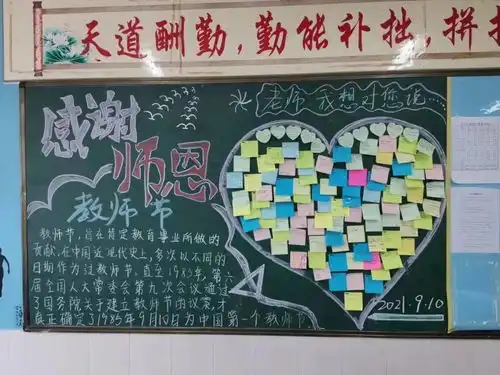 天道酬勤,勤能补拙,拼
感谢
师恩
教师节
老师 我想对您说……
教师节,旨在肯定教育事业所做的
贡献,在中国近现代史上,多次以不同的
日期作为过教师节,直至1985年,第六
届全国人大常委会第九次会议通过
了国务院关于建立教师节的议案,才
真正确定了1985年9月10日为中国第一个教师节.
2021.9.10